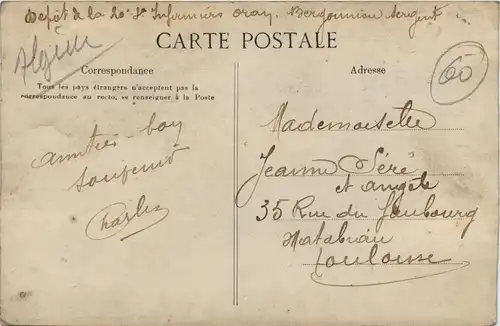 Depôt de la 20e Son Infirmiers Oran, Bergounian Sergent
Algérie
CARTE POSTALE
60
Correspondance
Tous les pays étrangers n'acceptent pas la
correspondance au recto, se renseigner à la Poste
Adresse
amitiés - bon
souvenir
Charles
Mademoiselle
Jeanne Séré
et angèle
35 Rue du Faubourg
Matabiau
Toulouse